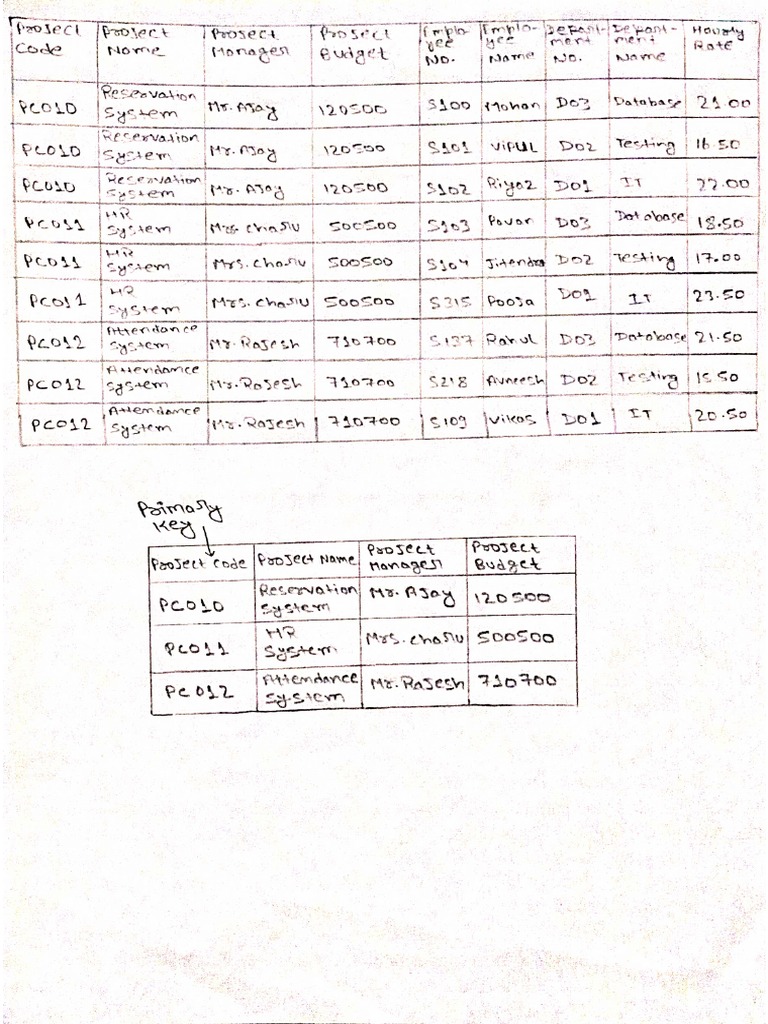 Project Code Project Name Project Manager Project Budget Emplo-yee No. Emplo-yee Name Depart-ment No. Depart-ment Name Hourly Rate
PC010 Reservation System Mr. Ajay 120500 S100 Mohan D03 Database 21.00
PC010 Reservation System Mr. Ajay 120500 S101 Vipul D02 Testing 16.50
PC010 Reservation System Mr. Ajay 120500 S102 Riyaz D01 IT 22.00
PC011 HR System Mrs. Charu 500500 S103 Pavan D03 Database 18.50
PC011 HR System Mrs. Charu 500500 S104 Jitendra D02 Testing 17.00
PC011 HR System Mrs. Charu 500500 S315 Pooja D01 IT 23.50
PC012 Attendance System Mr. Rajesh 710700 S137 Rahul D03 Database 21.50
PC012 Attendance System Mr. Rajesh 710700 S218 Avneesh D02 Testing 15.50
PC012 Attendance System Mr. Rajesh 710700 S109 Vikas D01 IT 20.50
Primary
Key
Project Code Project Name Project Manager Project Budget
PC010 Reservation System Mr. Ajay 120500
PC011 HR System Mrs. Charu 500500
PC012 Attendance System Mr. Rajesh 710700